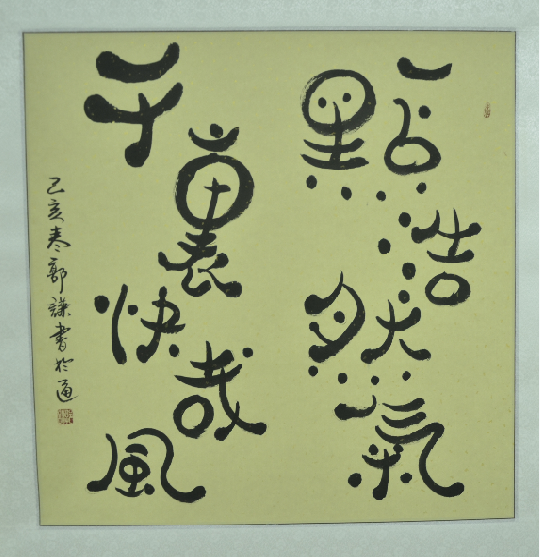 一點浩然氣
千裏快哉風
己亥春郭謙書於通